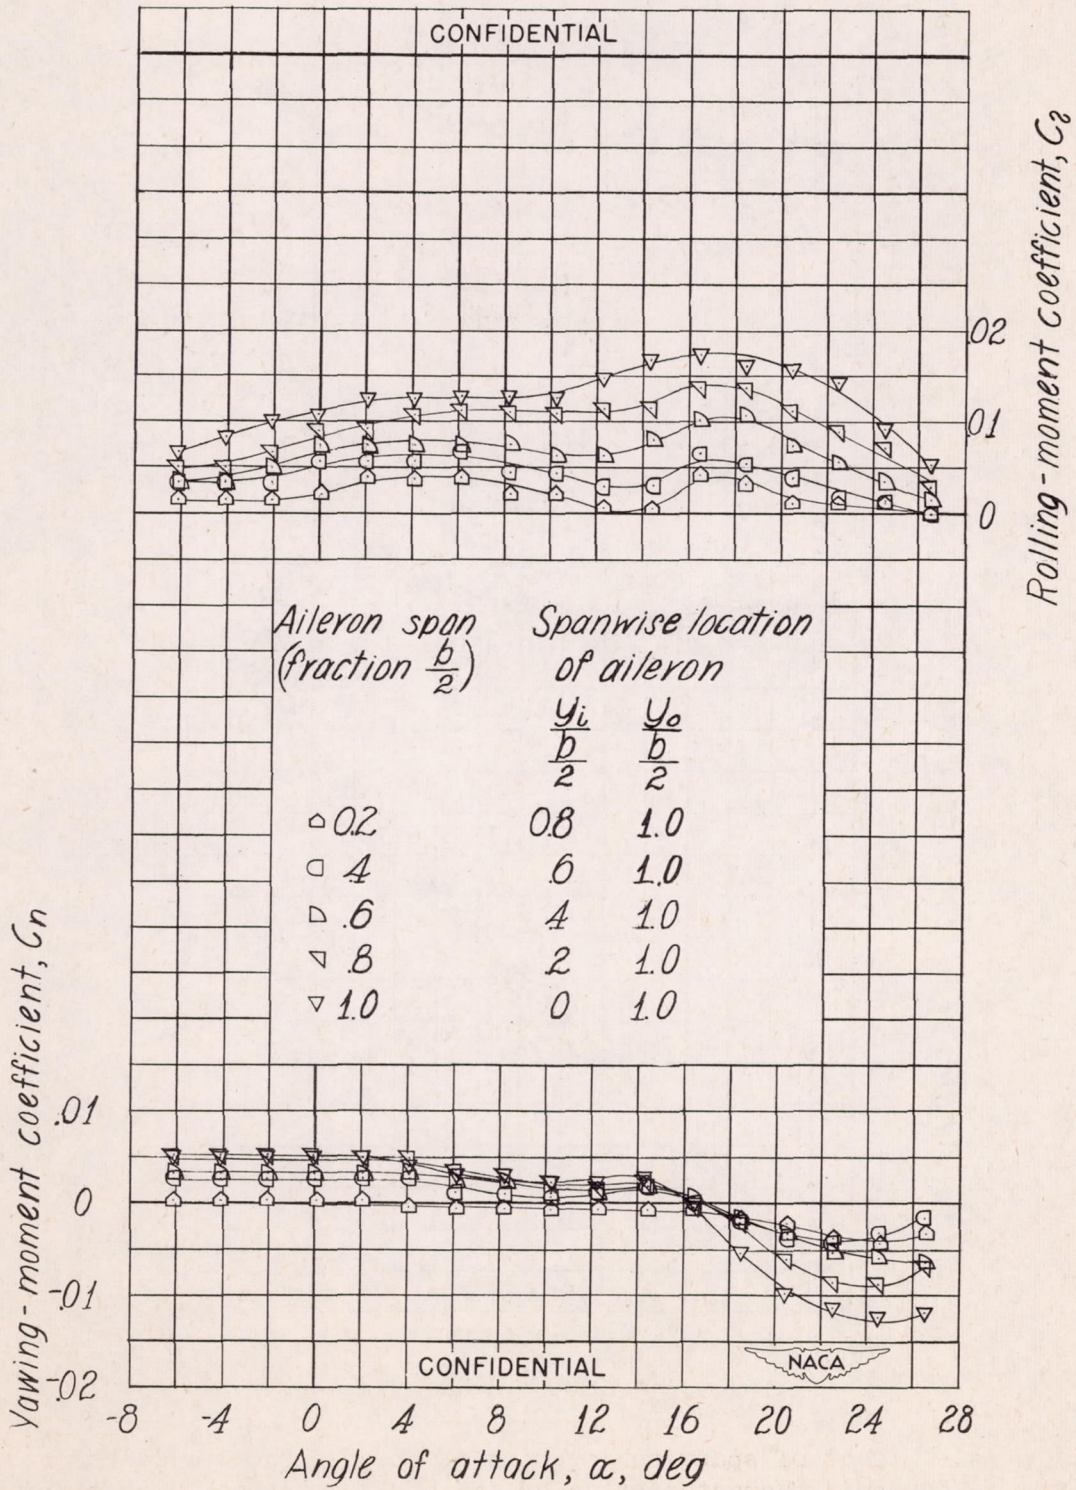 CONFIDENTIAL
Rolling-moment coefficient, Cl
.02
.01
0
Aileron span
(fraction b/2)
Spanwise location
of aileron
yi
b
2
yo
b
2
0.2 0.8 1.0
.4 .6 1.0
.6 .4 1.0
.8 .2 1.0
1.0 0 1.0
Yawing-moment coefficient, Cn
.01
0
-.01
-.02
CONFIDENTIAL
NACA
-8 -4 0 4 8 12 16 20 24 28
Angle of attack, α, deg